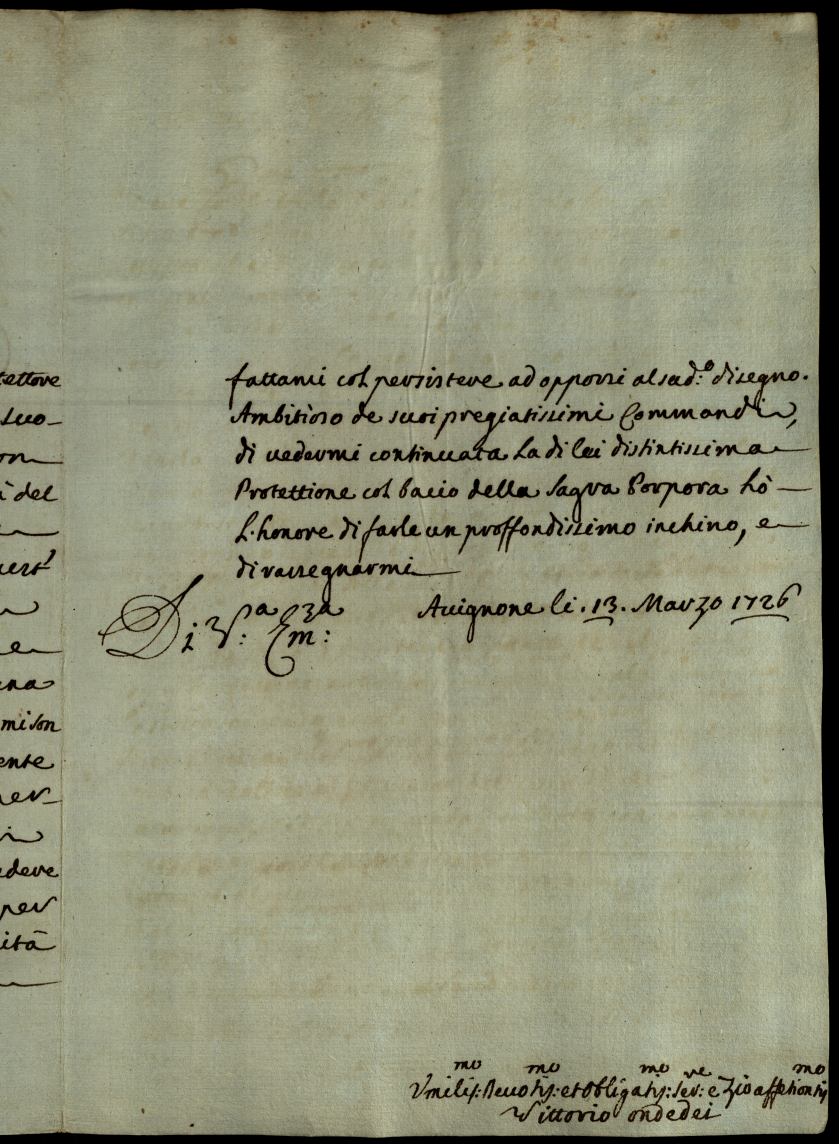 tettore
suo-
on
à del
uert
e
ena
mi son
ente
per-
edere
per
ità
fattami col persistere ad opporsi al sud.º disegno.
Ambitioso de suoi pregiatissimi Commandi,
di vedermi continuata la di lei distintissima
Protettione col bacio della Sagra Porpora hò
l'honore di farle un proffondissimo inchino, e
di rassegnarmi
Di V:ª Em:za Avignone li . 13. Marzo 1726
Vmilis:mo Deuotis:mo et Obligatis:mo Ser:re e Zio affetionatis:mo
Vittorio ondedei